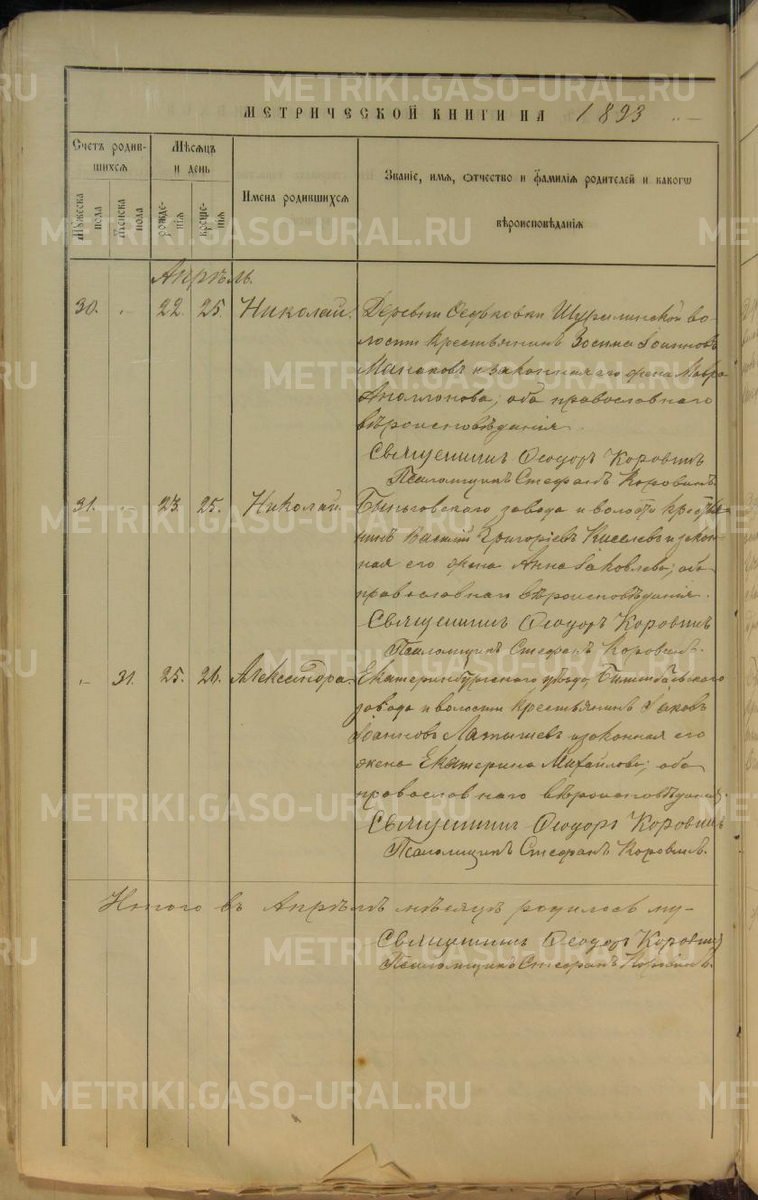 METRIKI.GASO-URAL.RU
МЕТРИЧЕСКОЙ КНИГИ НА 1893
Счетъ родив-
шихся
Мѣсяцъ
и день
Имена родившихся
Званіе, имя, отчество и фамилія родителей и какогѡ
вѣроисповѣданія
Мужеска пола
Женска пола
рожде-
нія
креще-
нія
Апрѣль.
30. 22. 25. Николай. Деревни Ѳедьковки Шуралинской во-
лости крестьянинъ Зосима Іоанновъ
и законная его жена Мавра
Аполлонова; оба православнаго
вѣроисповѣданія.
Священникъ Ѳеодоръ Коровинъ
Псаломщикъ Стефанъ Коровинъ.
31. 23. 25. Николай. Быньговскаго завода и волости крестья-
нинъ Василій Григоріевъ Киселевъ и закон-
ная его жена Анна Іаковлева; оба
православнаго вѣроисповѣданія.
Священникъ Ѳеодоръ Коровинъ
Псаломщикъ Стефанъ Коровинъ.
31. 25. 26. Александра. Екатеринбургскаго уѣзда,
завода и волости крестьянинъ Іаковъ
Іоанновъ Латышевъ и законная его
жена Екатерина Михайлова; оба
православнаго вѣроисповѣданія.
Священникъ Ѳеодоръ Коровинъ
Псаломщикъ Стефанъ Коровинъ.
Итого въ Апрѣлѣ мѣсяцѣ родилось му-
Священникъ Ѳеодоръ Коровинъ
Псаломщикъ Стефанъ Коровинъ.